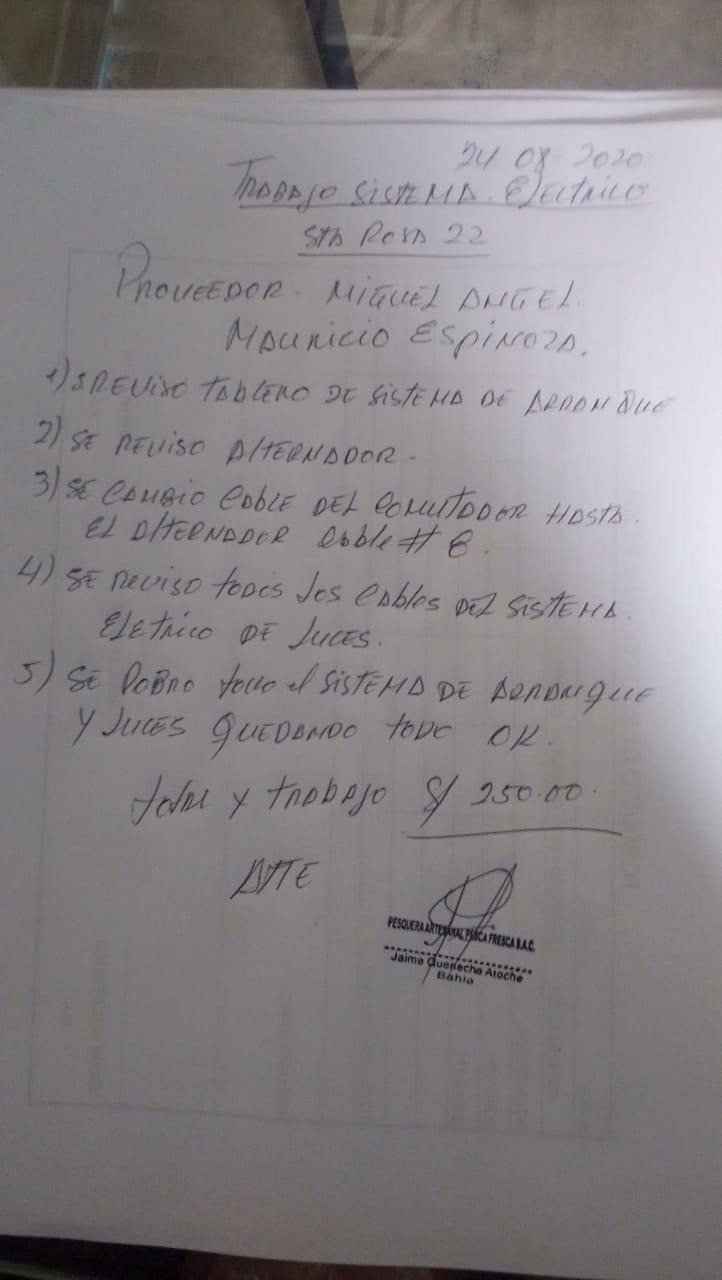 24.08-2020
TRABAJO SISTEMA. ELECTRICO
STA ROSA 22
PROVEEDOR. MIGUEL ANGEL.
MAURICIO ESPINOZA.
1) SREVISO TABLERO DE SISTEMA DE ARRANQUE
2) SE REVISO ALTERNADOR.
3) SE CAMBIO CABLE DEL CONMUTADOR HASTA.
EL ALTERNADOR cable # 8.
4) SE REVISO todos los cables DEL SISTEMA.
ELETRICO DE LUCES.
5) SE PROBRO todo el SISTEMA DE ARRANQUE
Y LUCES QUEDANDO TODO OK.
total y trabajo S/ 250.00.
ATTE
PESQUERA ARTESANAL PESCA FRESCA S.A.C.
Jaime Querreche Atoche
Bahia